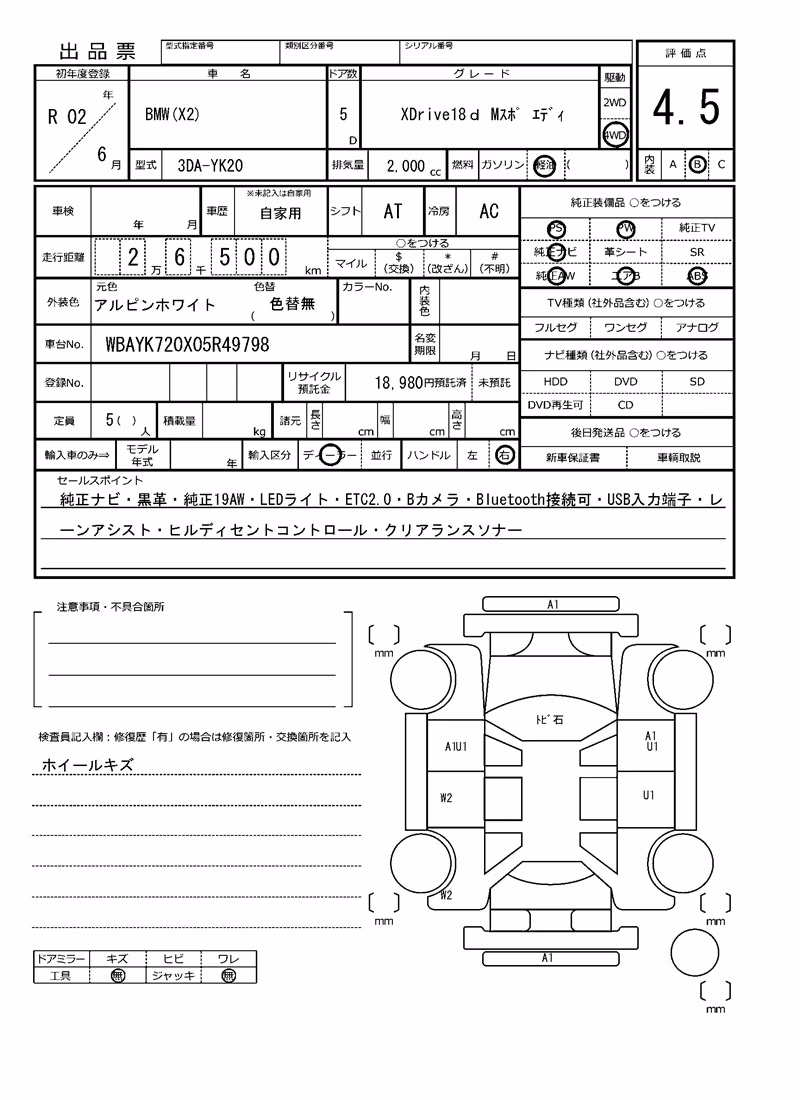 出品票
型式指定番号 類別区分番号 シリアル番号
評価点
4.5
内装 A B C
初年度登録 車名 ドア数 グレード 駆動
R 02 年 6 月
BMW(X2) 5 D XDrive18d Mスポ エディ
2WD
4WD
型式 3DA-YK20 排気量 2,000 cc 燃料 ガソリン 軽油 ( )
車検 年 月 車歴 ※未記入は自家用 自家用 シフト AT 冷房 AC
走行距離 2 万 6 千 500 km
○をつける
マイル $(交換) *(改ざん) #(不明)
外装色 元色 アルピンホワイト 色替 ( 色替無 ) カラーNo. 内装色
車台No. WBAYK720X05R49798 名変期限 月 日
登録No. リサイクル預託金 18,980円預託済 未預託
定員 5( )人 積載量 kg 諸元 長さ cm 幅 cm 高さ cm
輸入車のみ⇒ モデル年式 年 輸入区分 ディーラー 並行 ハンドル 左 右
純正装備品 ○をつける
PS PW 純正TV
純正ナビ 革シート SR
純正AW エアB ABS
TV種類(社外品含む)○をつける
フルセグ ワンセグ アナログ
ナビ種類(社外品含む)○をつける
HDD DVD SD
DVD再生可 CD
後日発送品 ○をつける
新車保証書 車輌取説
セールスポイント
純正ナビ・黒革・純正19AW・LEDライト・ETC2.0・Bカメラ・Bluetooth接続可・USB入力端子・レ
ーンアシスト・ヒルディセントコントロール・クリアランスソナー
注意事項・不具合箇所
検査員記入欄：修復歴「有」の場合は修復箇所・交換箇所を記入
ホイールキズ
ドアミラー キズ ヒビ ワレ
工具 無 ジャッキ 無
A1
mm mm
トビ石
A1U1
A1
U1
W2
U1
W2
mm mm
A1
mm